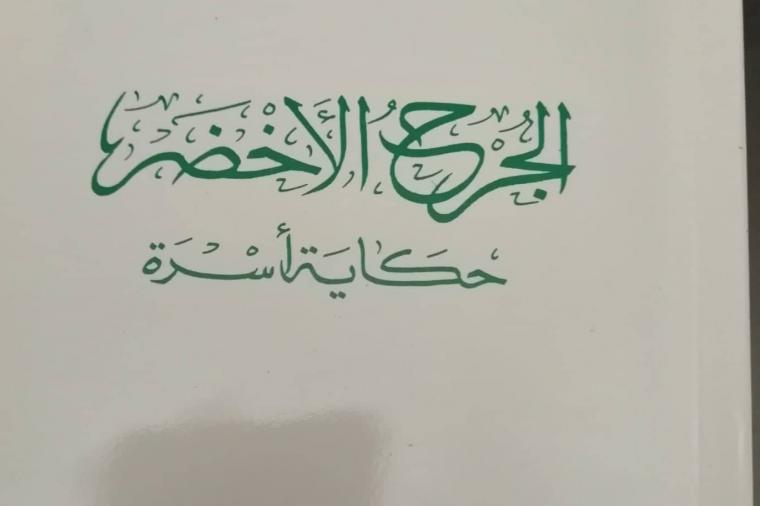 الجُرْحُ الأَخْضَر
حكاية أسْرَة